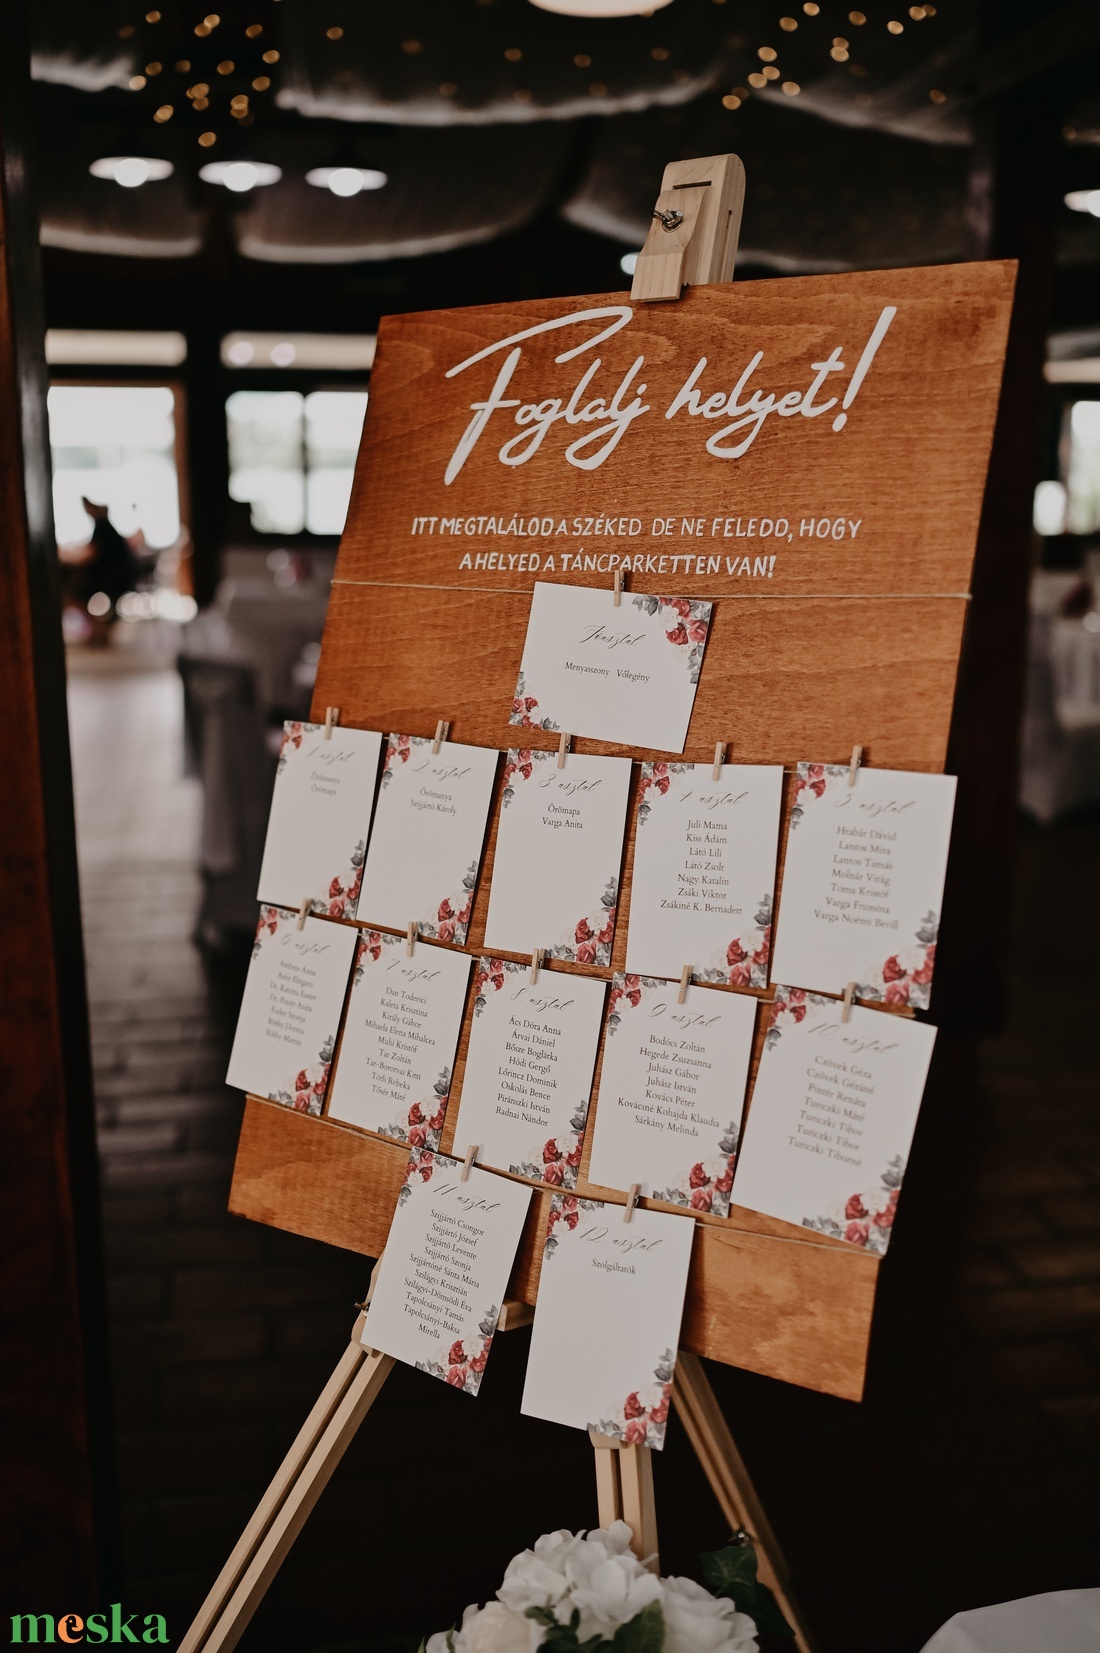 Foglalj helyet!
ITT MEGTALÁLOD A SZÉKED DE NE FELEDD, HOGY
A HELYED A TÁNCPARKETTEN VAN!
Főasztal
Menyasszony Vőlegény
1. asztal
Örömanya
Örömapa
2. asztal
Örömanya
Szijjártó Károly
3. asztal
Örömapa
Varga Anita
4. asztal
Juli Mama
Kiss Ádám
Látó Lili
Látó Zsolt
Nagy Katalin
Zsáki Viktor
Zsákiné K. Bernadett
5. asztal
Hrabár Dávid
Lantos Mira
Lantos Tamás
Molnár Virág
Toma Kristóf
Varga Fruzsina
Varga Noémi Berill
6. asztal
Andrea Anna
Dr. Katona Eszter
Fodor Szonja
7. asztal
Dan Toderici
Kalera Krisztina
Király Gábor
Mihaela Elena Mihalcea
Muhi Kristóf
Tar Zoltán
Tar-Borotvai Kitti
Tóth Rebeka
Tősér Máté
8. asztal
Ács Dóra Anna
Árvai Dániel
Bősze Boglárka
Hódi Gergő
Lőrincz Dominik
Oskolás Bence
Piránszki István
Radnai Nándor
9. asztal
Bodócs Zoltán
Hegede Zsuzsanna
Juhász Gábor
Juhász István
Kovács Péter
Kovácsné Kohajda Klaudia
Sárkány Melinda
10. asztal
Czövek Géza
Czövek Gézáné
Pintér Renáta
Turiczki Máté
Turiczki Tibor
Turiczki Tibor
Turiczki Tiborné
11. asztal
Szijjártó Csongor
Szijjártó József
Szijjártó Levente
Szijjártó Szonja
Szijjártóné Sánta Mária
Szilágyi Krisztián
Szilágyi-Dömsödi Éva
Tapolcsányi Tamás
Tapolcsányi-Baksa
Mirella
12. asztal
Szolgáltatók
meska